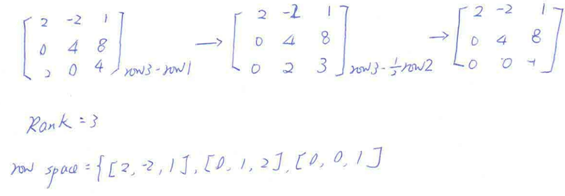 [2 -2 1; 0 4 8; 2 0 4] row3-row1 → [2 -2 1; 0 4 8; 0 2 3] row3-½row2 → [2 -2 1; 0 4 8; 0 0 -1]
Rank = 3
row space = {[2, -2, 1], [0, 1, 2], [0, 0, 1]